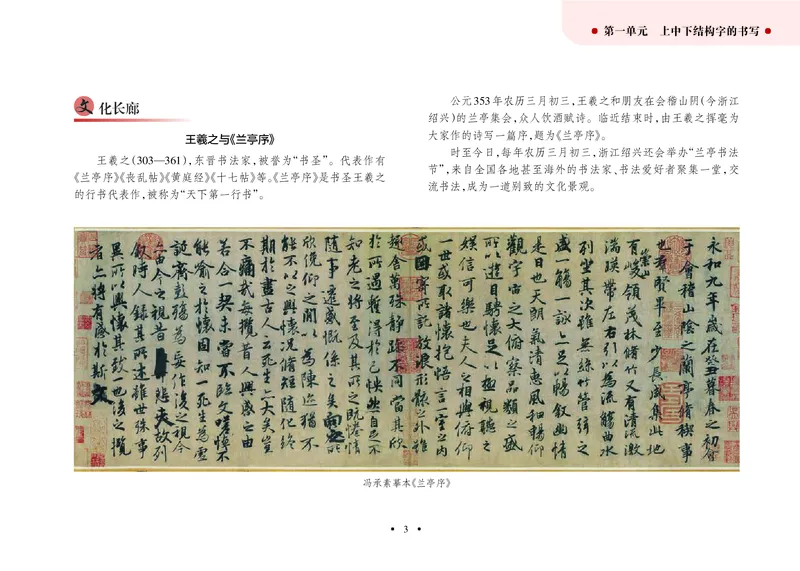 第一单元 上中下结构字的书写
文化长廊
王羲之与《兰亭序》
王羲之(303—361),东晋书法家,被誉为“书圣”。代表作有
《兰亭序》《丧乱帖》《黄庭经》《十七帖》等。《兰亭序》是书圣王羲之
的行书代表作,被称为“天下第一行书”。
公元353年农历三月初三,王羲之和朋友在会稽山阴(今浙江
绍兴)的兰亭集会,众人饮酒赋诗。临近结束时,由王羲之挥毫为
大家作的诗写一篇序,题为《兰亭序》。
时至今日,每年农历三月初三,浙江绍兴还会举办“兰亭书法
节”,来自全国各地甚至海外的书法家、书法爱好者聚集一堂,交
流书法,成为一道别致的文化景观。
永和九年歲在癸丑暮春之初會
于會稽山陰之蘭亭脩稧事
也羣賢畢至少長咸集此地
有崇山峻領茂林脩竹又有清流激
湍暎帶左右引以為流觴曲水
列坐其次雖無絲竹管弦之
盛一觴一詠亦足以暢敘幽情
是日也天朗氣清惠風和暢仰
觀宇宙之大俯察品類之盛
所以遊目騁懷足以極視聽之
娛信可樂也夫人之相與俯仰
一世或取諸懷抱悟言一室之內
或因寄所託放浪形骸之外雖
趣舍萬殊靜躁不同當其欣
於所遇蹔得於己怏然自足不
知老之將至及其所之既惓情
隨事遷感慨係之矣向之所
欣俛仰之閒以為陳迹猶不
能不以之興懷況脩短隨化終
期於盡古人云死生亦大矣豈
不痛哉每攬昔人興感之由
若合一契未嘗不臨文嗟悼不
能喻之於懷固知一死生為虛
誕齊彭殤為妄作後之視今
亦由今之視昔悲夫故列
敘時人錄其所述雖世殊事
異所以興懷其致一也後之攬
者亦將有感於斯文
冯承素摹本《兰亭序》
3